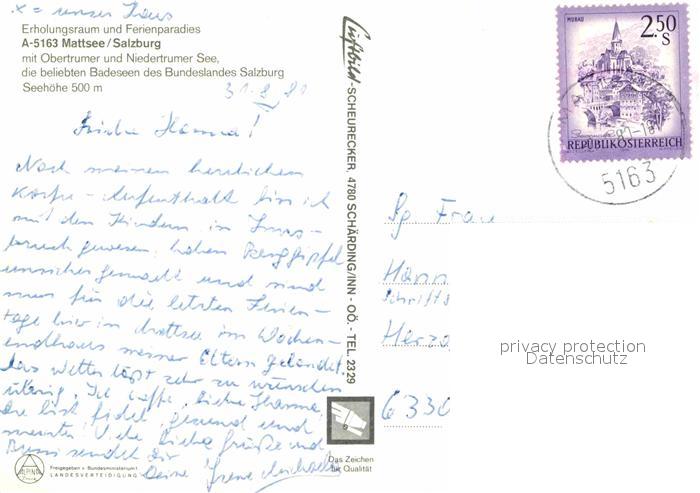 x = unser Haus
Erholungsraum und Ferienparadies
A-5163 Mattsee/Salzburg
mit Obertrumer und Niedertrumer See,
die beliebten Badeseen des Bundeslandes Salzburg
Seehöhe 500 m
31.8.81
Hanna!
Nach meinem herrlichen
Korfu-Aufenthalt bin ich
mit den Kindern in Inns-
bruck gewesen, haben Berggipfel
unsicher gemacht und sind
nun für die letzten Ferien-
tage hier in Mattsee im Wochen-
endhaus meiner Eltern gelandet
das Wetter läßt sehr zu wünschen
übrig. Ich hoffe, liebe Hanna,
Du bist fidel, gesund und
munter. Viele liebe Grüße und
Bussi sendet Dir
Deine Irene
Freigegeben v. Bundesministerium f.
LANDESVERTEIDIGUNG
ALPINA
Luftbild-SCHEURECKER, 4780 SCHÄRDING/INN - OÖ. - TEL. 2329
Das Zeichen
für Qualität
MURAU
2.50
S
REPUBLIK ÖSTERREICH
5163
Frau
Hann
Schrifts
Herzo
6330
privacy protection
Datenschutz